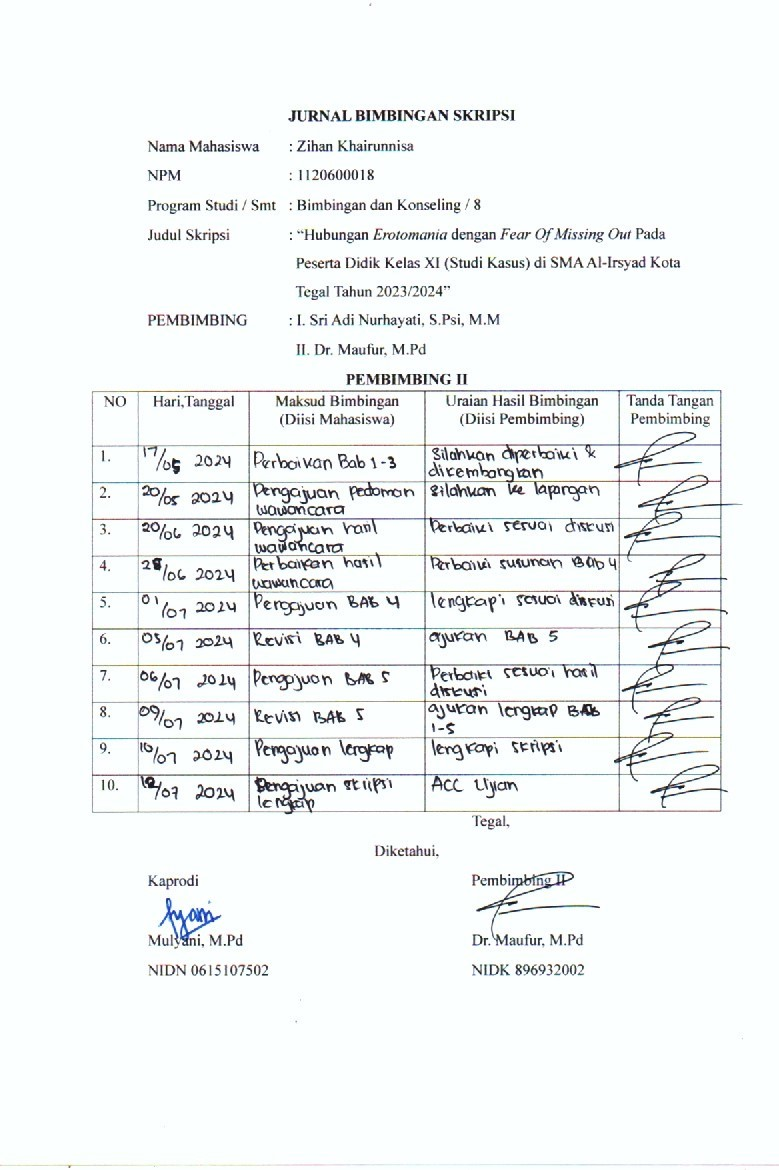 JURNAL BIMBINGAN SKRIPSI
Nama Mahasiswa : Zihan Khairunnisa
NPM : 1120600018
Program Studi / Smt : Bimbingan dan Konseling / 8
Judul Skripsi : “Hubungan Erotomania dengan Fear Of Missing Out Pada
Peserta Didik Kelas XI (Studi Kasus) di SMA Al-Irsyad Kota
Tegal Tahun 2023/2024”
PEMBIMBING : I. Sri Adi Nurhayati, S.Psi, M.M
II. Dr. Maufur, M.Pd
PEMBIMBING II
NO Hari,Tanggal Maksud Bimbingan Uraian Hasil Bimbingan Tanda Tangan
(Diisi Mahasiswa) (Diisi Pembimbing) Pembimbing
1. 17/05 2024 Perbaikan Bab 1-3 Silahkan diperbaiki &
dikembangkan
2. 20/05 2024 Pengajuan pedoman Silahkan ke lapangan
wawancara
3. 20/06 2024 Pengajuan hasil Perbaiki sesuai diskusi
wawancara
4. 28/06 2024 Perbaikan hasil Perbaiki susunan BAB 4
wawancara
5. 01/07 2024 Pengajuan BAB 4 lengkapi sesuai diskusi
6. 03/07 2024 Revisi BAB 4 ajukan BAB 5
7. 06/07 2024 Pengajuan BAB 5 Perbaiki sesuai hasil
diskusi
8. 09/07 2024 Revisi BAB 5 ajukan lengkap BAB
1-5
9. 10/07 2024 Pengajuan lengkap lengkapi skripsi
10. 12/07 2024 Pengajuan skripsi ACC Ujian
lengkap
Tegal,
Diketahui,
Kaprodi Pembimbing II
Mulyani, M.Pd Dr. Maufur, M.Pd
NIDN 0615107502 NIDK 896932002